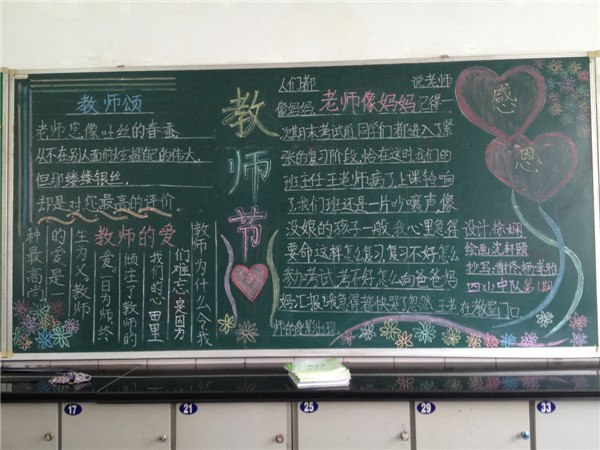 教师颂
老师您像吐丝的春蚕
从不在别人面前炫耀自己的伟大,
但那缕缕银丝,
却是对您最高的评价。
教师的爱
教师为什么令我
们难忘是因为
我们的心田里
倾注了教师的
爱。因为师终
生为父。教师
的爱是一
种最高尚
教师节
人们都 说老师
像妈妈,老师像妈妈,记得一
次期末考试前,同学们都进入了紧
张的复习阶段,恰在这时我们的
班主任王老师病了,上课铃响
了,我们班还是一片吵嚷声,像
没娘的孩子一般,我心里急得
要命,这样怎么复习,复习不好怎么
参加考试,考不好,怎么向爸爸妈
妈汇报,我急得都快哭了,忽然,王老 在教室门口
师的身影出现
感
恩
设计:徐娴
绘画:沈轩颐
抄写:谢
四(1)中队 第1期
17
21
25
29
33